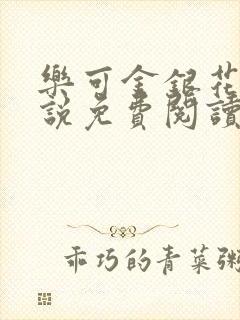 樂可金銀花
說免費閱讀
乖巧的青菜粥